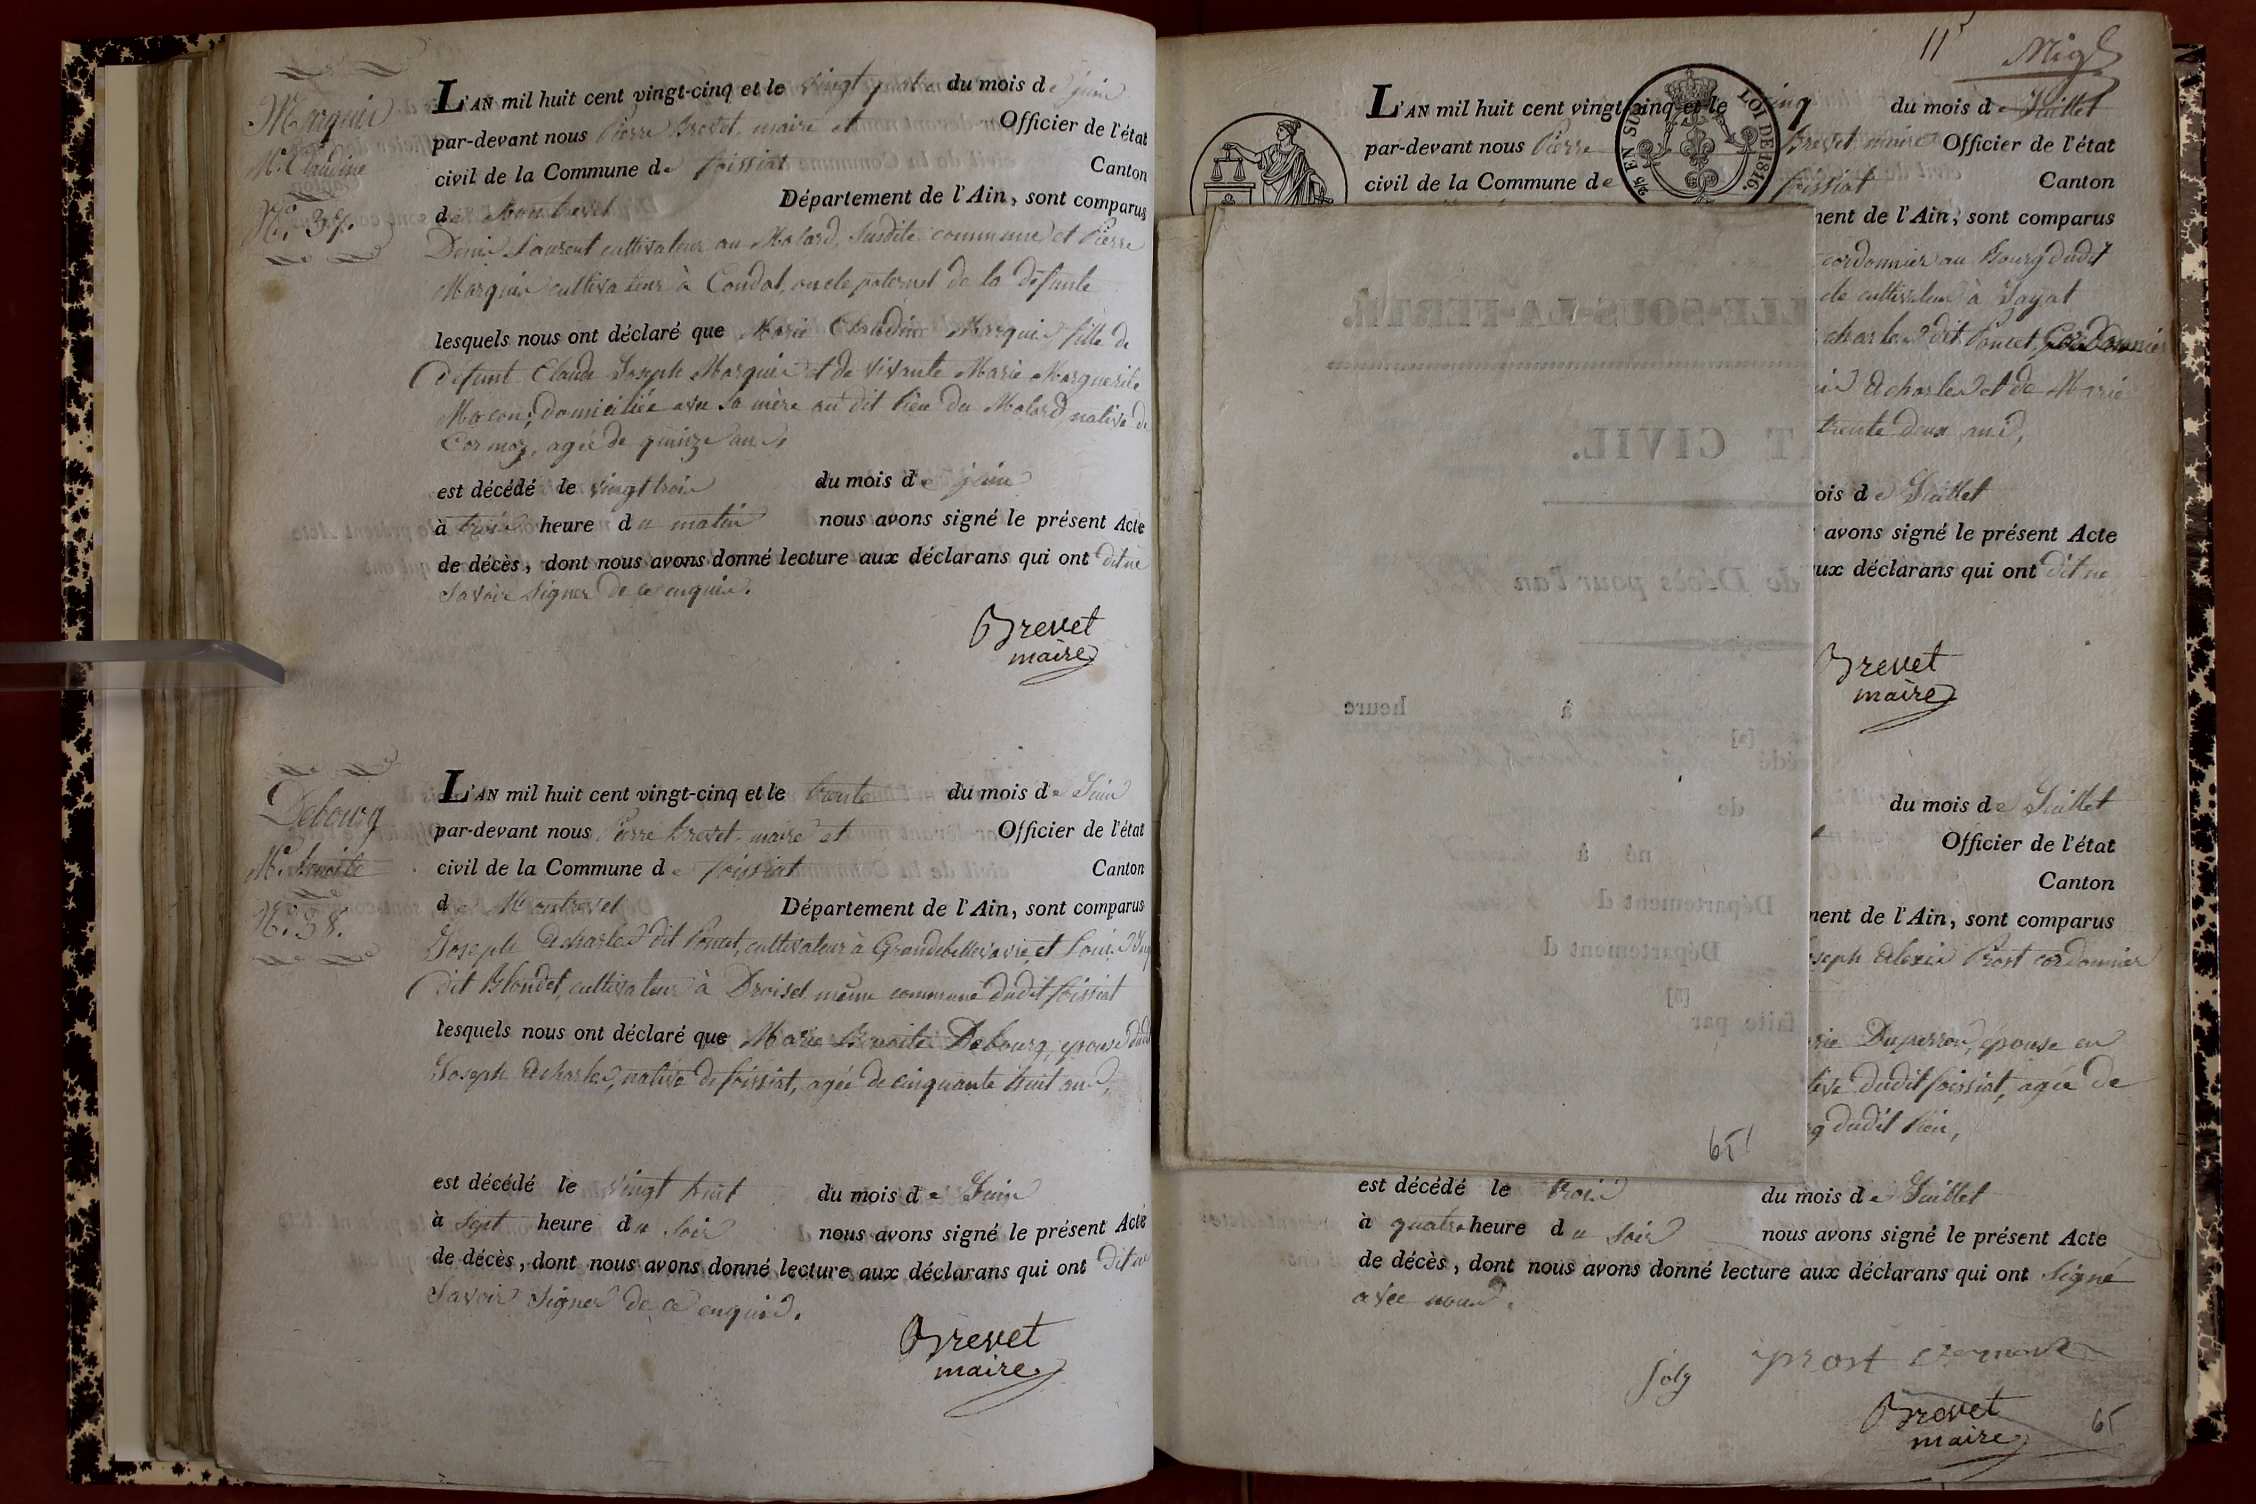 Marquis
Mie Claudine
N.° 37.
L'AN mil huit cent vingt-cinq et le vingt quatre du mois de juin
par-devant nous Pierre Brevet, maire et Officier de l'état
civil de la Commune de foissiat Canton
de Montrevel Département de l'Ain, sont comparus
Denis Laurent cultivateur au Molard, susdite commune et Pierre
Marquis cultivateur à Condal, oncle paternel de la défunte
lesquels nous ont déclaré que Marie Claudine Marquis fille de
défunt Claude Joseph Marquis et de vivante Marie Marguerite
Macon, domiciliée avec sa mère au dit lieu du Molard, native de
Cormoz, agée de quinze ans,
est décédé le vingt trois du mois de juin
à trois heure du matin nous avons signé le présent Acte
de décès, dont nous avons donné lecture aux déclarans qui ont dit ne
savoir signer de ce enquis.
Brevet
maire
Debourg
Mie Benoite
N.° 38.
L'AN mil huit cent vingt-cinq et le trente du mois de Juin
par-devant nous Pierre Brevet, maire et Officier de l'état
civil de la Commune de foissiat Canton
de Montrevel Département de l'Ain, sont comparus
Joseph Acharles dit Poncet, cultivateur à Grandebellevavre, et Louis
dit Blondet, cultivateur à Droiset même commune dudit foissiat
lesquels nous ont déclaré que Marie Benoite Debourg, épouse dudit
Joseph Acharles, native de foissiat, agée de cinquante huit ans,
est décédé le vingt huit du mois de Juin
à sept heure du soir nous avons signé le présent Acte
de décès, dont nous avons donné lecture aux déclarans qui ont dit ne
savoir signer de ce enquis.
Brevet
maire
11
L'AN mil huit cent vingt-cinq et le cinq du mois de Juillet
par-devant nous Pierre Brevet maire Officier de l'état
civil de la Commune de foissiat Canton
EN SUS
LOI DE 1816.
ment de l'Ain, sont comparus
cordonnier au Bourg dudit
de cultivateur à Jayat
acharles dit Poncet, Cordonnier
acharles et de Marie
trente deux ans,
ois de Juillet
avons signé le présent Acte
aux déclarans qui ont dit ne
Brevet
maire
du mois de Juillet
Officier de l'état
Canton
ment de l'Ain, sont comparus
oseph alexis Prost cordonnier
rie Duperron, épouse en
tive dudit foissiat, agée de
g dudit lieu,
65
est décédé le trois du mois de Juillet
à quatre heure du soir nous avons signé le présent Acte
de décès, dont nous avons donné lecture aux déclarans qui ont signé
avec nous.
joly prost
Brevet
maire
65